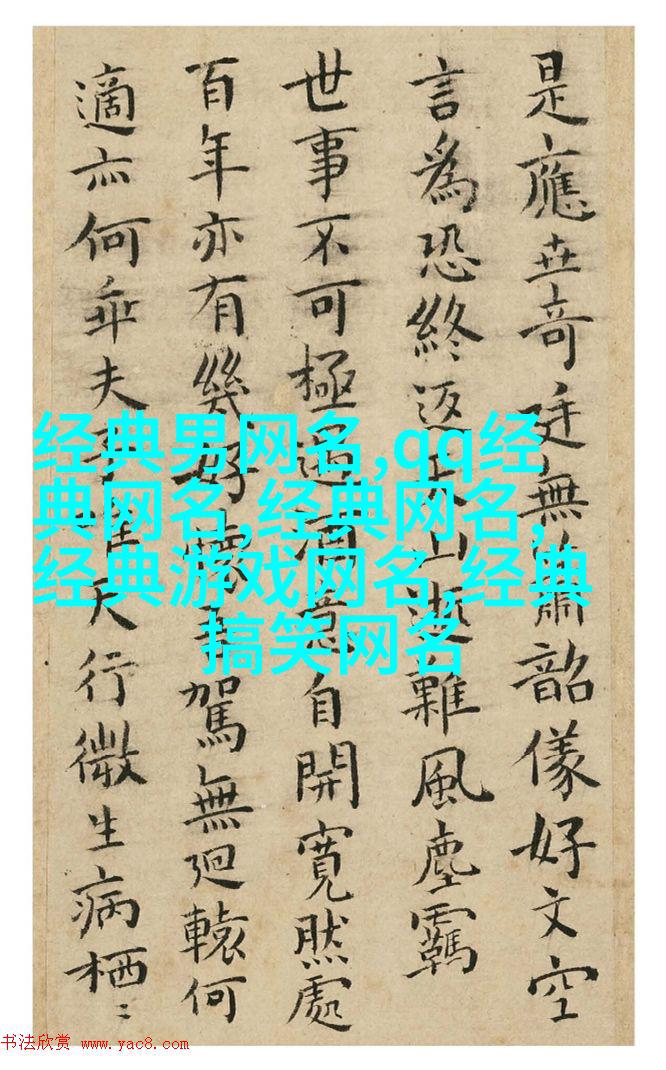 是應世奇廷無韶儀好文空
言為恐終返山遊難風塵羈
世事不可極意自開寬然處
百年亦有幾好駕無迴轅何
適亦何乖夫天行微生病栖〻
经典男网名,qq经
典网名,经典网名,
经典游戏网名,经典
搞笑网名
书法欣赏 www.yac8.com